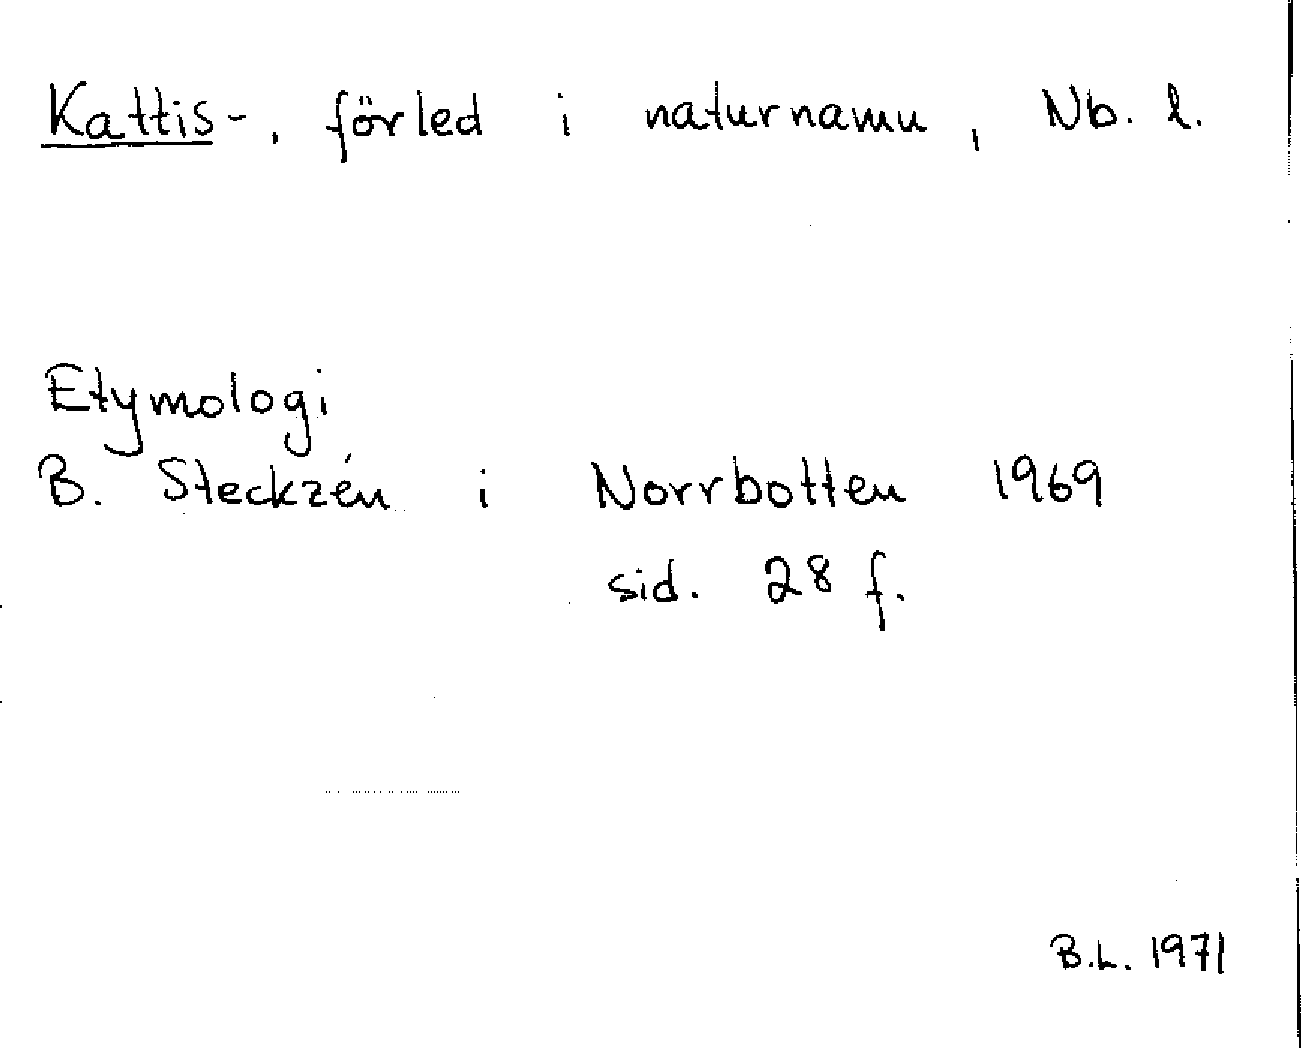 Kattis-, förled i naturnamn, Nb. l.
Etymologi
B. Steckzén i Norrbotten 1969
sid. 28 f.
B.L. 1971